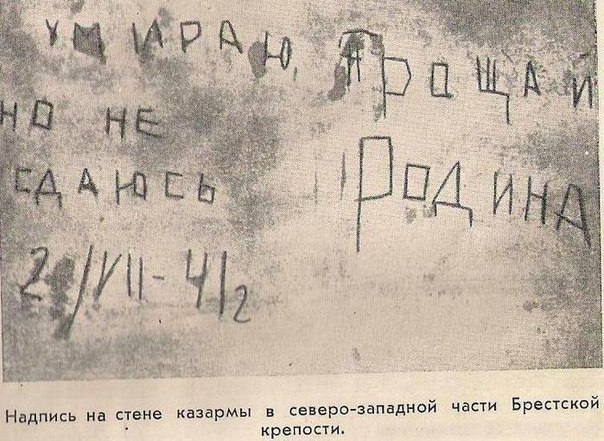 УМИРАЮ,
НО НЕ
СДАЮСЬ
ПРОЩАЙ
РОДИНА
20/VII-41г
Надпись на стене казармы в северо-западной части Брестской
крепости.